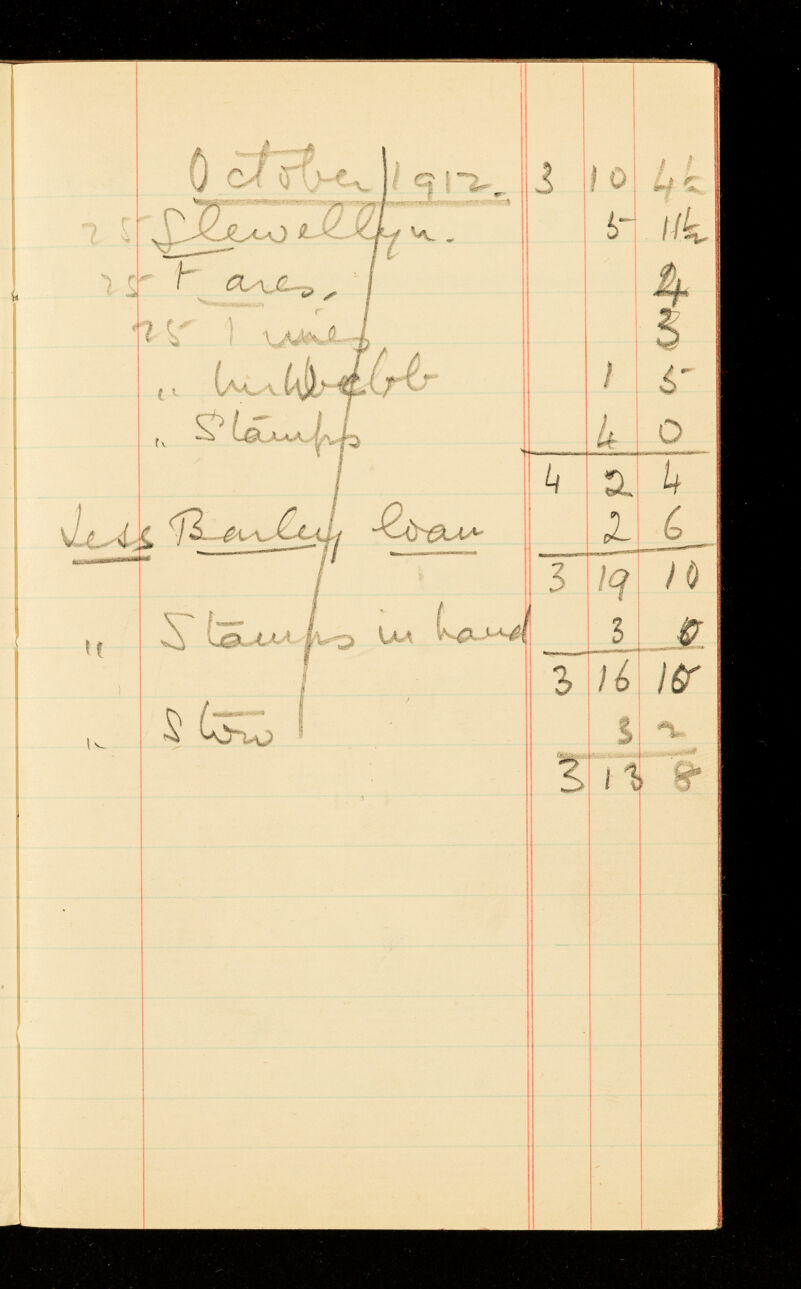 October 1912. 3 10 4½
25 Llewellyn. 5 11½
25 Fares. 4
25 Times 3
" Webb 1 5
" Stamps 4 0
4 2 4
Less Barley loan 2 6
3 19 10
" Stamps in hand 3 0
3 16 10
" Stow 3 2
3 13 8